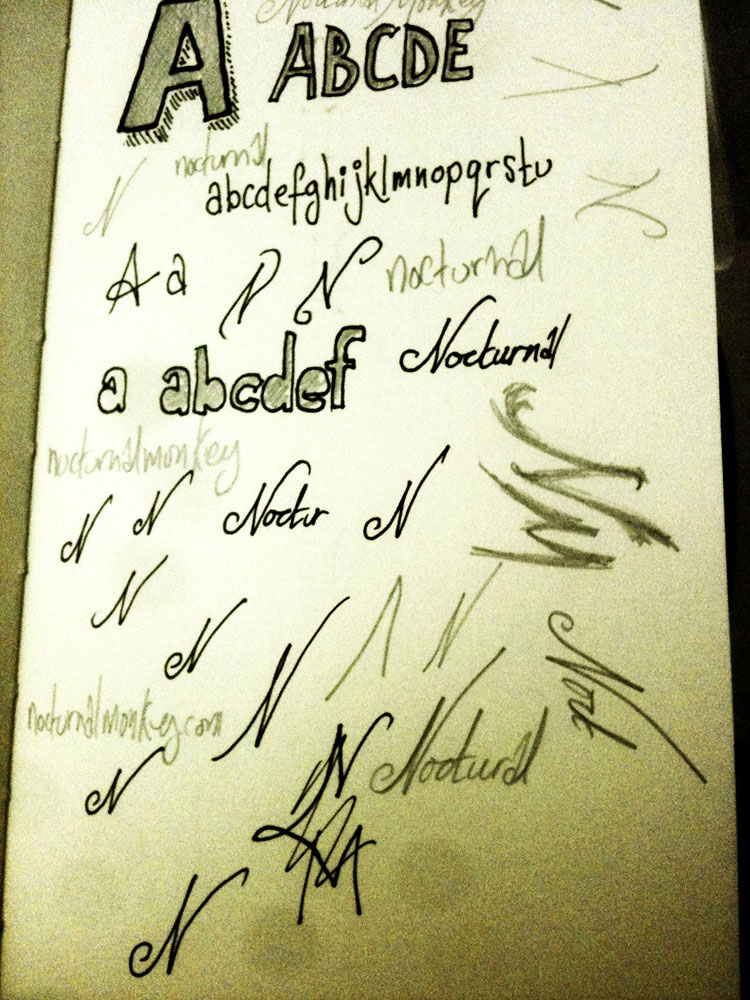 Nocturnal Monkey
A ABCDE
nocturnal
N
abcdefghijklmnopqrstu
N
A a N N nocturnal
a abcdef Nocturnal
nocturnalmonkey
N N Noctur N
N
N
N N
Noct
nocturnalmonkey.com
N Noctural
N
N